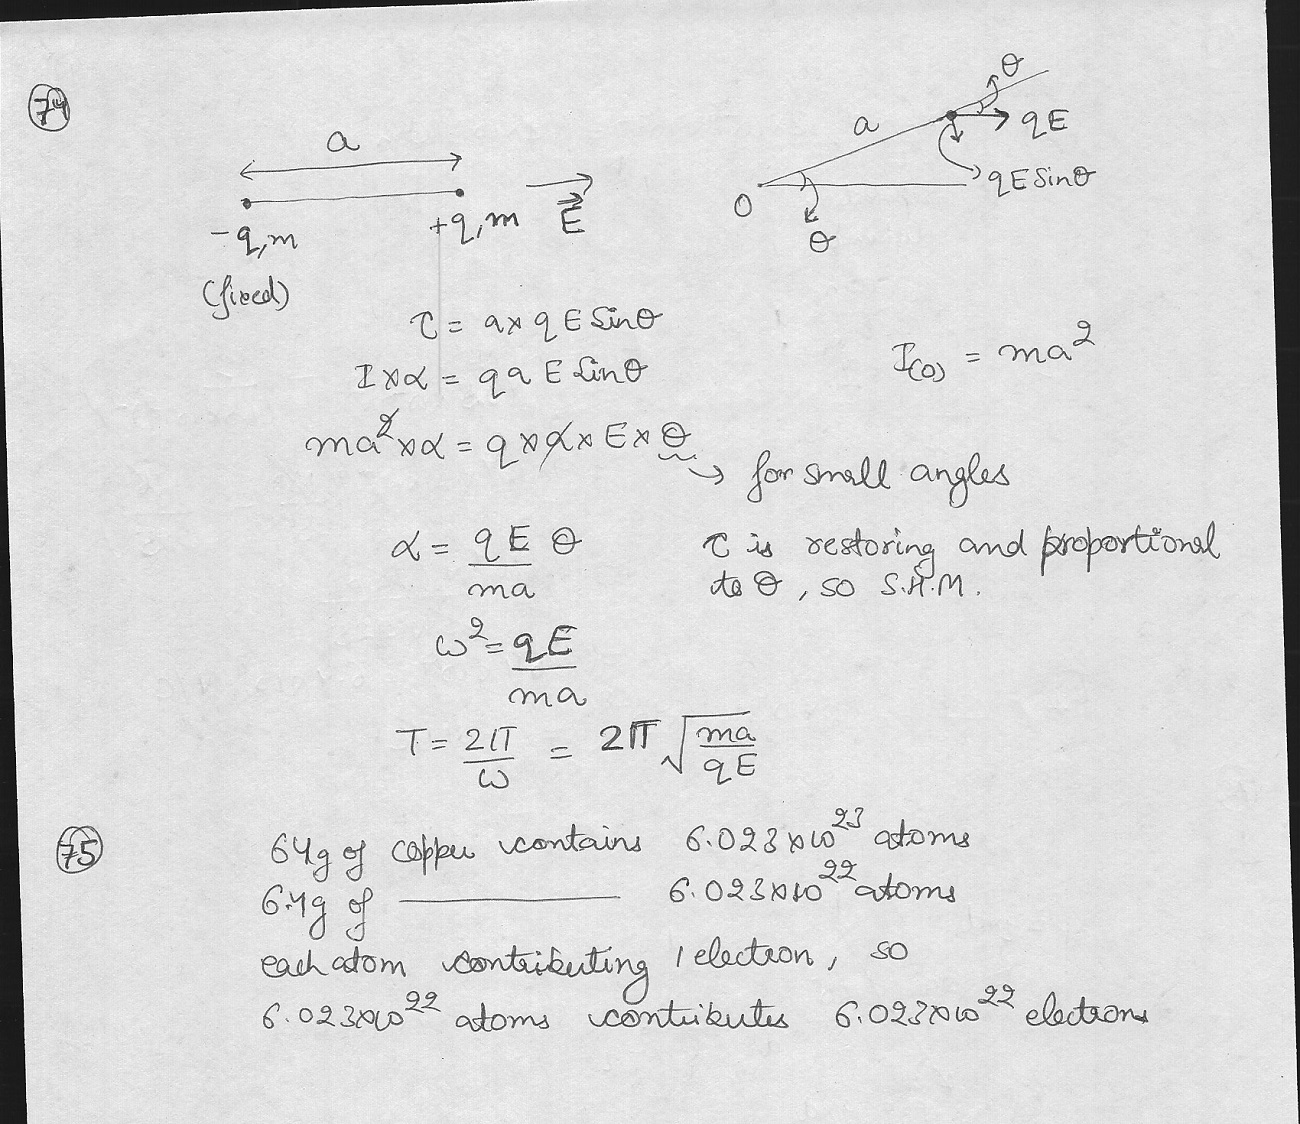 74
a
-q,m
+q,m
E
(fixed)
θ
a
qE
qE Sinθ
O
θ
τ = a x q E Sinθ
I x α = q a E Sinθ
I(O) = ma²
ma² x α = q x a x E x θ
for small angles
α = qE/ma θ
τ is restoring and proportional
to θ, so S.H.M.
ω² = qE/ma
T = 2π/ω = 2π √(ma/qE)
75
64g of copper contains 6.023x10²³ atoms
6.4g of ——— 6.023x10²² atoms
each atom contributing 1 electron, so
6.023x10²² atoms contributes 6.023x10²² electrons